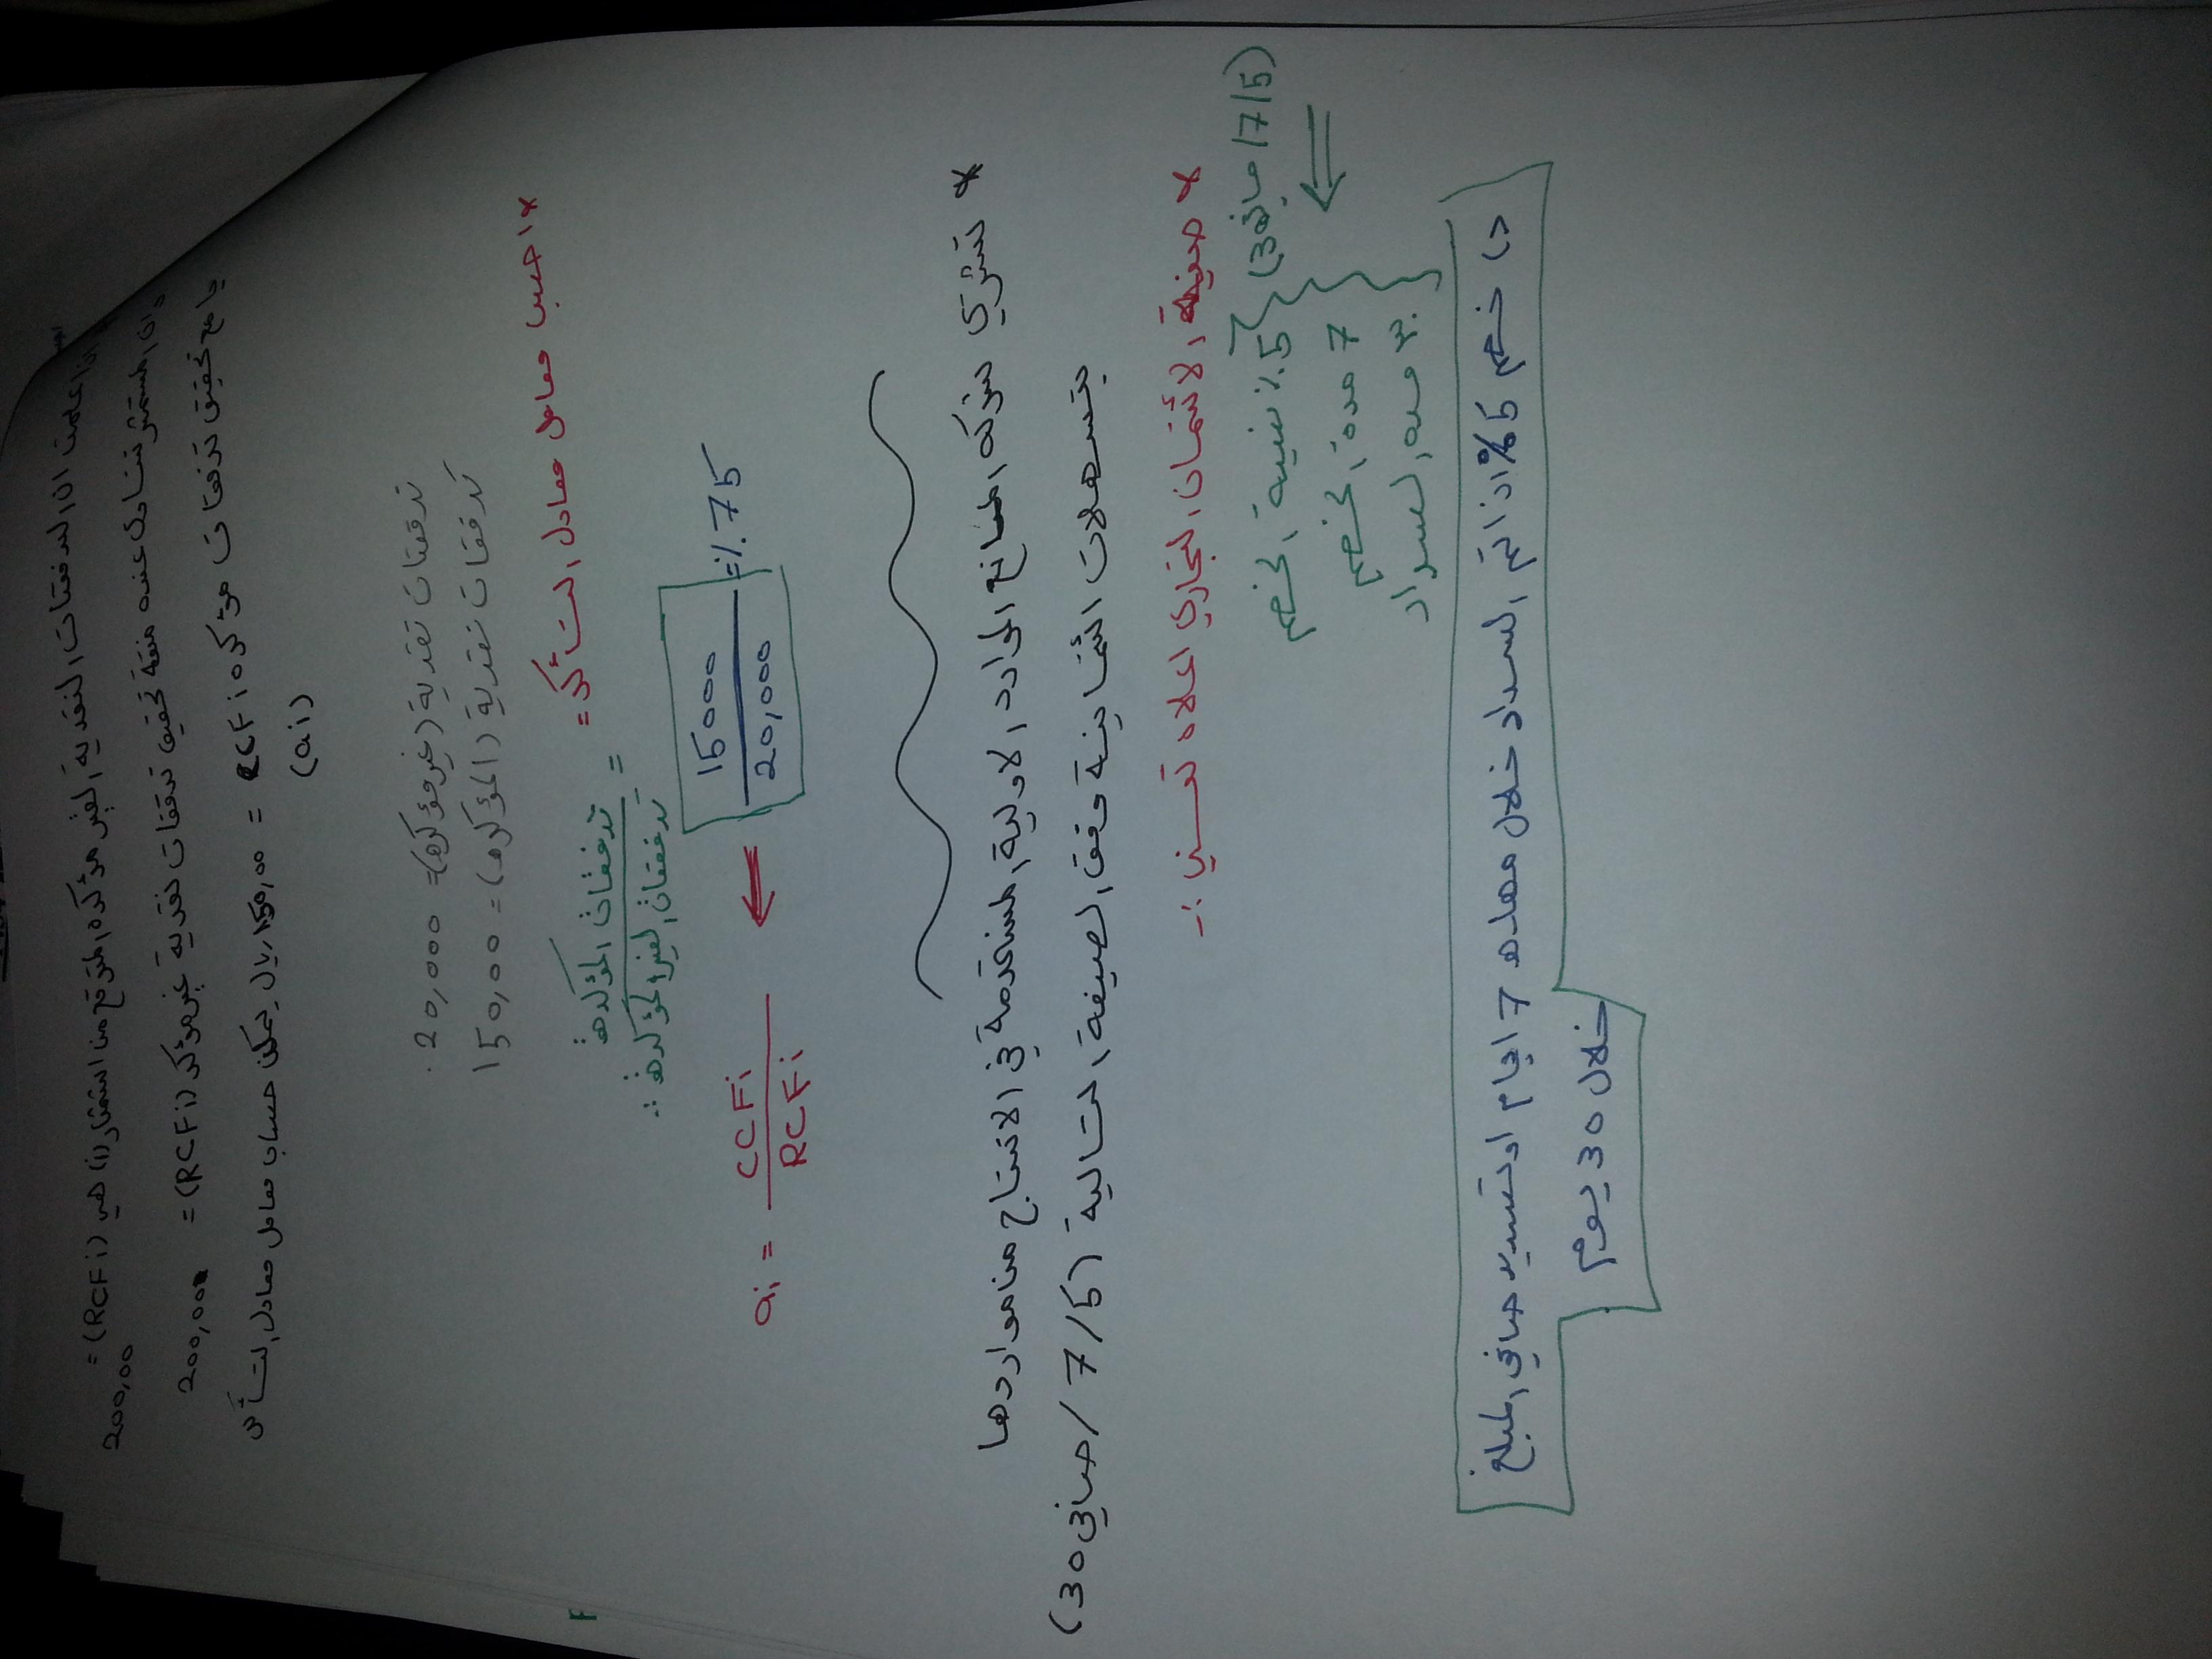 اذا علمت ان التدفقات النقدية الغير مؤكده المتوقع من استثمار (i) هي (RCFi) =
200,00
وان المستثمر تتساوى عنده منفعة تحقيق تدفقات نقدية غير مؤكد (RCFi) = 200,00
يا مع تحقيق تدفقات مؤكده CCFi = 150,00 ريال يمكن حساب معامل معادل التأكد
(ai)
تدفقات نقدية (غير مؤكده) = 20,000
تدفقات نقدية (المؤكده) = 150,00
* احسب معامل معادل التأكد =
∴ تدفقات المؤكده =
تدفقات الغير المؤكده
ai = CCFi / RCFi ← 15000 / 20,000 = %.75
* تشتري شركه المصانع المواد الاولية المستخدمة في الانتاج من مواردها
بتسهلات ائتمانية وفق الصيغة التالية (5/7/صافي 30)
* صيغة الائتمان التجاري اعلاه تعني :-
(5/7/صافي 30)
%.5 نسبة الخصم
7 مدة الخصم
30 مده السداد
د) خصم 5% اذا تم السداد خلال مهله 7 ايام او تسديد صافي المبلغ
خلال 30 يوم
F